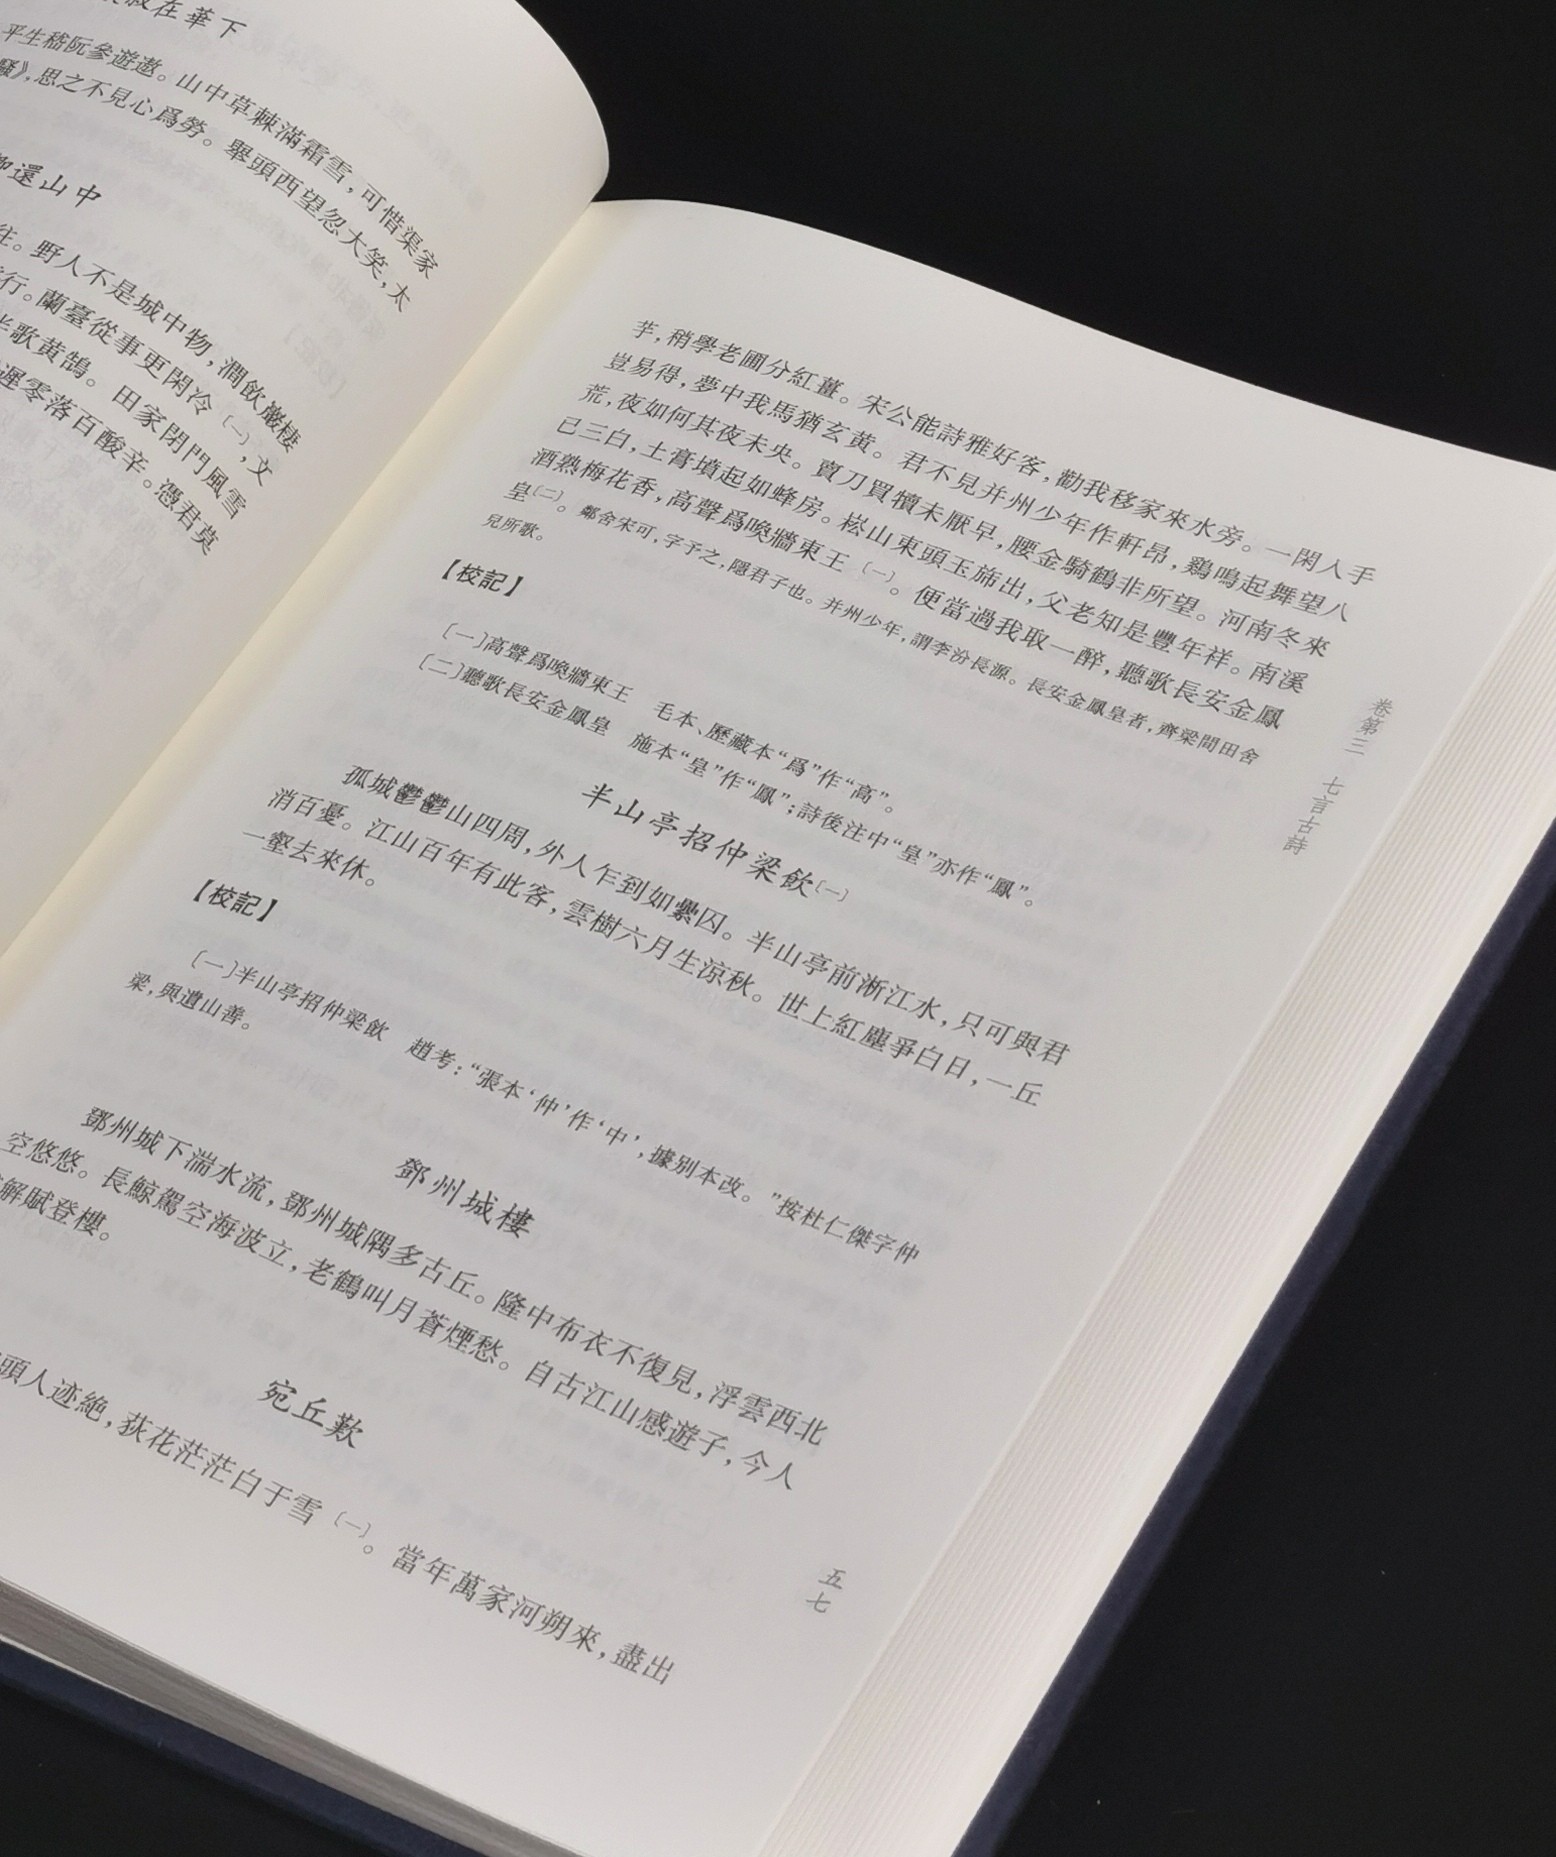 叔在華下
平生嵇阮參遊遨。山中草棘滿霜雪，可惜渠家
騷》，思之不見心爲勞。舉頭西望忽大笑，太
還山中
往。野人不是城中物，澗飲巖棲
行。蘭臺從事更閑冷〔一〕，文
歌黄鵠。田家閉門風雪
遲零落百酸辛。憑君莫
芋，稍學老圃分紅薑。宋公能詩雅好客，勸我移家來水旁。一閑人手
豈易得，夢中我馬猶玄黄。君不見并州少年作軒昂，鷄鳴起舞望八
荒，夜如何其夜未央。賣刀買犢未厭早，腰金騎鶴非所望。河南冬來
已三白，土膏墳起如蜂房。崧山東頭玉斾出，父老知是豐年祥。南溪
酒熟梅花香，高聲爲喚牆東王〔一〕。便當過我取一醉，聽歌長安金鳳
皇〔二〕。鄰舍宋可，字予之，隱君子也。并州少年，謂李汾長源。長安金鳳皇者，齊梁間田舍
兒所歌。
【校記】
〔一〕高聲爲喚牆東王　毛本、歷藏本“爲”作“高”。
〔二〕聽歌長安金鳳皇　施本“皇”作“鳳”；詩後注中“皇”亦作“鳳”。
半山亭招仲梁飲〔一〕
孤城鬱鬱山四周，外人乍到如纍囚。半山亭前淅江水，只可與君
消百憂。江山百年有此客，雲樹六月生涼秋。世上紅塵爭白日，一丘
一壑去來休。
【校記】
〔一〕半山亭招仲梁飲　趙考：“張本‘仲’作‘中’，據別本改。”按杜仁傑字仲
梁，與遺山善。
鄧州城樓
鄧州城下湍水流，鄧州城隅多古丘。隆中布衣不復見，浮雲西北
空悠悠。長鯨駕空海波立，老鶴叫月蒼煙愁。自古江山感遊子，今人
解賦登樓。
宛丘歎
頭人迹絶，荻花茫茫白于雪〔一〕。當年萬家河朔來，盡出
卷第三　七言古詩
五七